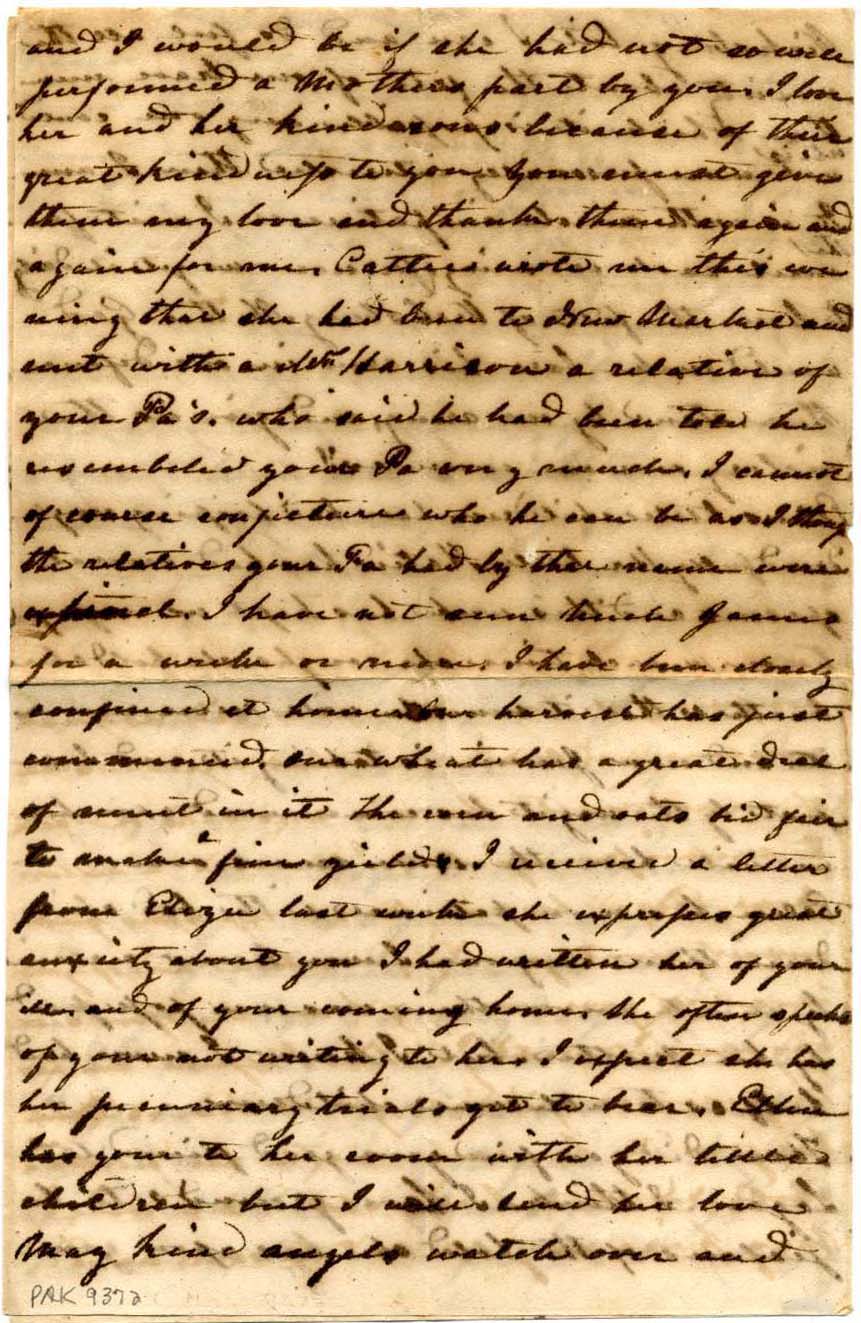 and I would be if she had not so well
performed a Mothers part by you. I love
her and her kind sons because of their
great kindness to you You must give
them my love and thank them again and
again for me. Cattie wrote me this eve
ning that she had been to New Market and
met with a Mr Harrison a relative of
your Pa's. who said he had been told he
resembled your Pa very much. I cannot
of course conjecture who he can be as I thought
the relatives your Pa had by that name were
extinct. I have not seen Uncle James
for a week or more. I have been closely
confined at home. Our harvest has just
commenced. our wheat has a great deal
of smut in it the corn and oats bid fair
to make a fine yield. I received a letter
from Eliza last week she expresses great
anxiety about you I had written her of your
and of your coming home. She often speaks
of your not writing to her. I expect she has
her pecuniary trials yet to bear. Ellen
has gone to her room with her little
children but I will send her love
May kind angels watch over and
PAK 9372